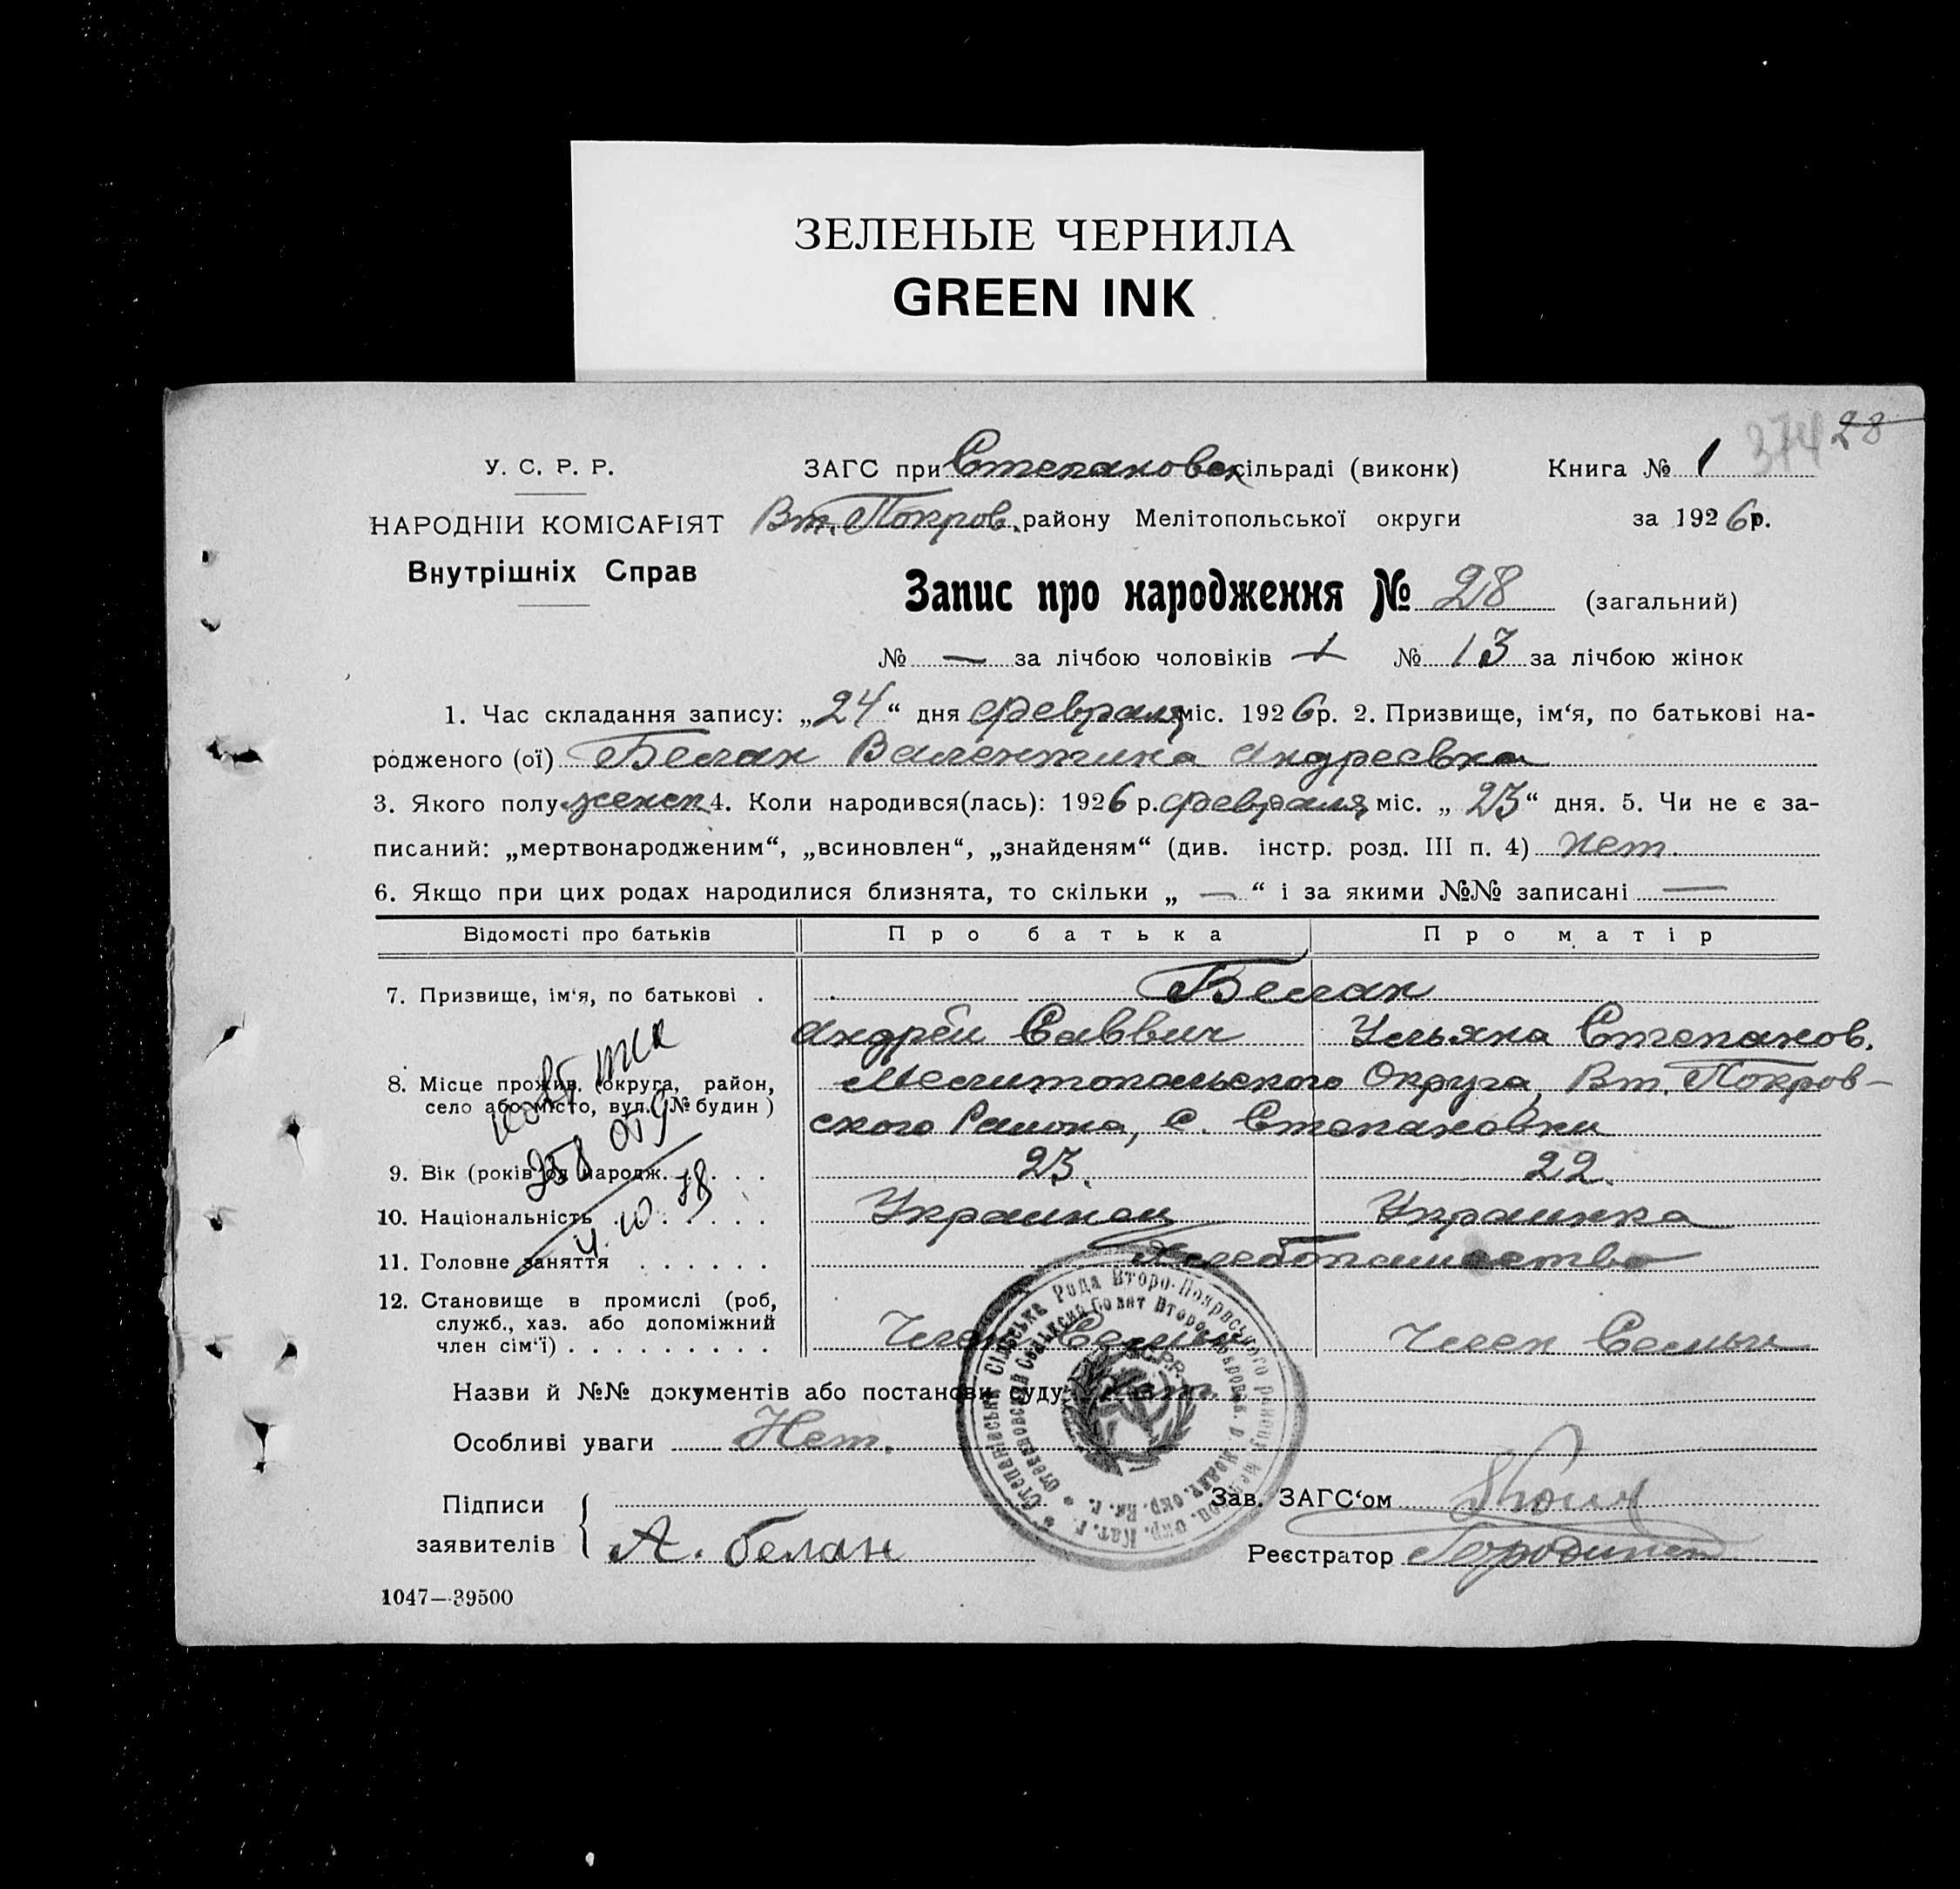 ЗЕЛЕНЫЕ ЧЕРНИЛА
GREEN INK
374 28
У. С. Р. Р.
НАРОДНІЙ КОМІСАРІЯТ
Внутрішніх Справ
ЗАГС при Степановск сільраді (виконк) Книга № 1
Вт. Покров. району Мелітопольської округи за 1926 р.
Запис про народження № 28 (загальний)
№ — за лічбою чоловіків № 13 за лічбою жінок
1. Час складання запису: „24“ дня февраля міс. 1926 р. 2. Призвище, ім‘я, по батькові на-
родженого (ої) Белан Валентина Андреевна
3. Якого полу женск 4. Коли народився(лась): 1926 р. февраля міс. „23“ дня. 5. Чи не є за-
писаний: „мертвонародженим“, „всиновлен“, „знайденям“ (див. інстр. розд. III п. 4) нет.
6. Якщо при цих родах народилися близнята, то скільки „ — “ і за якими №№ записані —
Відомості про батьків Про батька Про матір
7. Призвище, ім‘я, по батькові . Белан
Андрей Саввич Ульяна Степанов.
8. Місце прожив. (округа, район, Мелитопольского Округа, Вт. Покров-
село або місто, вул. № будин) ского Района, с. Степановки
9. Вік (років од народж. . . . . 23. 22.
10. Національність . . . . . . Украинец Украинка
11. Головне заняття . . . . . . Хлебопашество
12. Становище в промислі (роб,
служб., хаз. або допоміжний
член сім‘ї) . . . . . . . . . Член Семьи Член Семьи
Назви й №№ документів або постанови суду нет.
Особливі уваги Нет.
Підписи
заявителів А. белан
Зав. ЗАГС‘ом
Реєстратор
1047—39500